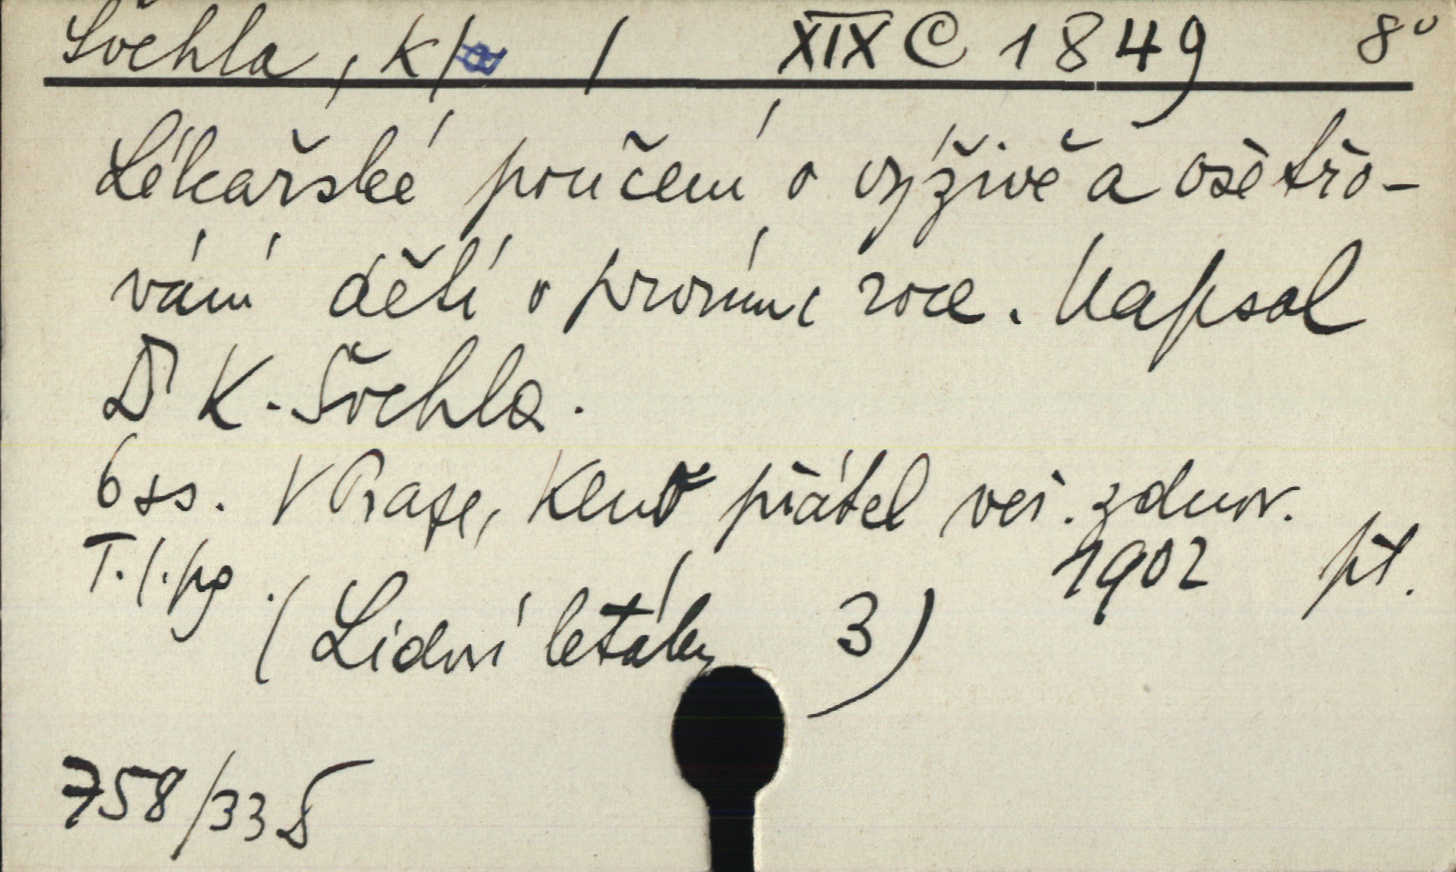 Švehla, K/ / XIX C 1849 8°
Lékařské poučení o výživě a ošetřo-
vání dětí v prvním roce. Napsal
Dr K. Švehla.
6 ss. V Praze, Klub přátel veř. zdrav.
T. l. pg. 1902 př.
(Lidové letáky 3)
758/33 D